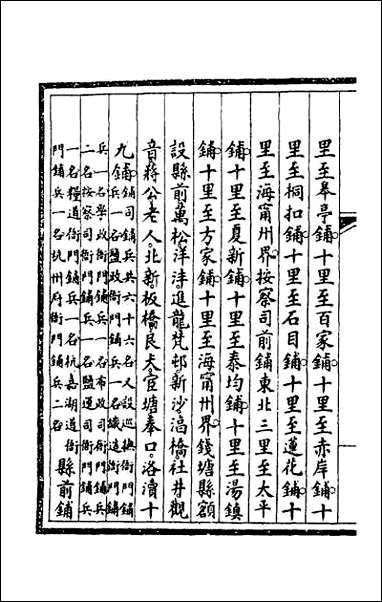 里至皋亭鋪十里至百家鋪十里至赤岸鋪十
里至桐扣鋪十里至石目鋪十里至蓮花鋪十
里至海甯州界按察司前鋪東北三里至太平
鋪十里至夏新鋪十里至泰均鋪十里至湯鎮
鋪十里至方家鋪十里至海甯州界錢塘縣額
設縣前萬松洋泮進龍梵邨新沙滔橋社井觀
音蔣公老人北新板橋良夫官塘奉口洛瀆十
九鋪鋪司鋪兵共六十六名人設巡撫衙門鋪
兵一名鹽政衙門鋪兵一名織造衙門鋪
兵一名學政衙門鋪兵一名布政司衙門鋪兵
二名按察司衙門鋪兵一名鹽道司衙門鋪兵
一名糧道衙門鋪兵一名杭嘉湖道衙
門鋪兵一名杭州府衙門鋪兵二名
縣前鋪